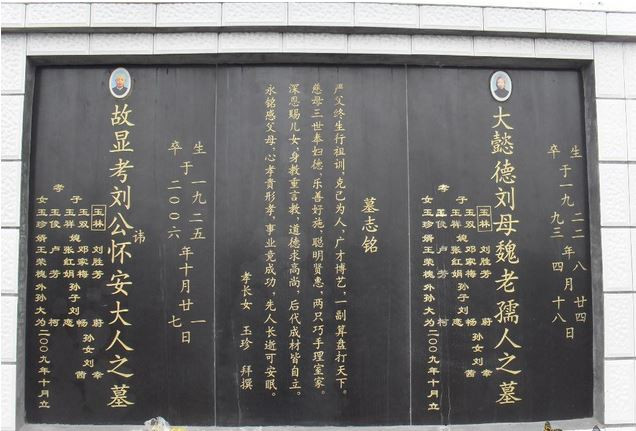 生于一九二二年八月廿四
卒于一九九三年四月十八日
大懿德刘母魏老孺人之墓
玉林 刘胜芳 蔚
玉双 邓家梅 畅
孝子 媳 孙子刘 孙女刘
玉祥 张红娟 志 茜
玉俊 卢芳 柯
女玉珍婿王荣槐外孙大为二00九年十月立
墓志铭
严父终生行祖训、克己为人、广才博艺、一副算盘打天下。
慈母三世奉妇德、乐善好施、聪明贤惠、两只巧手理室家。
深恩赐儿女、身教重言教、道德求高尚、后代成材皆自立。
永铭感父母、心孝贵形孝、事业竟成功、先人长逝可安眠。
孝长女 玉珍 拜撰
生于一九二五年十月廿一
卒于二00六年十月廿七日
故显考刘公讳怀安大人之墓
玉林 刘胜芳 蔚
玉双 邓家梅 畅
孝子 媳 孙子刘 孙女刘
玉祥 张红娟 志 茜
玉俊 卢芳 柯
女玉珍婿王荣槐外孙大为二00九年十月立